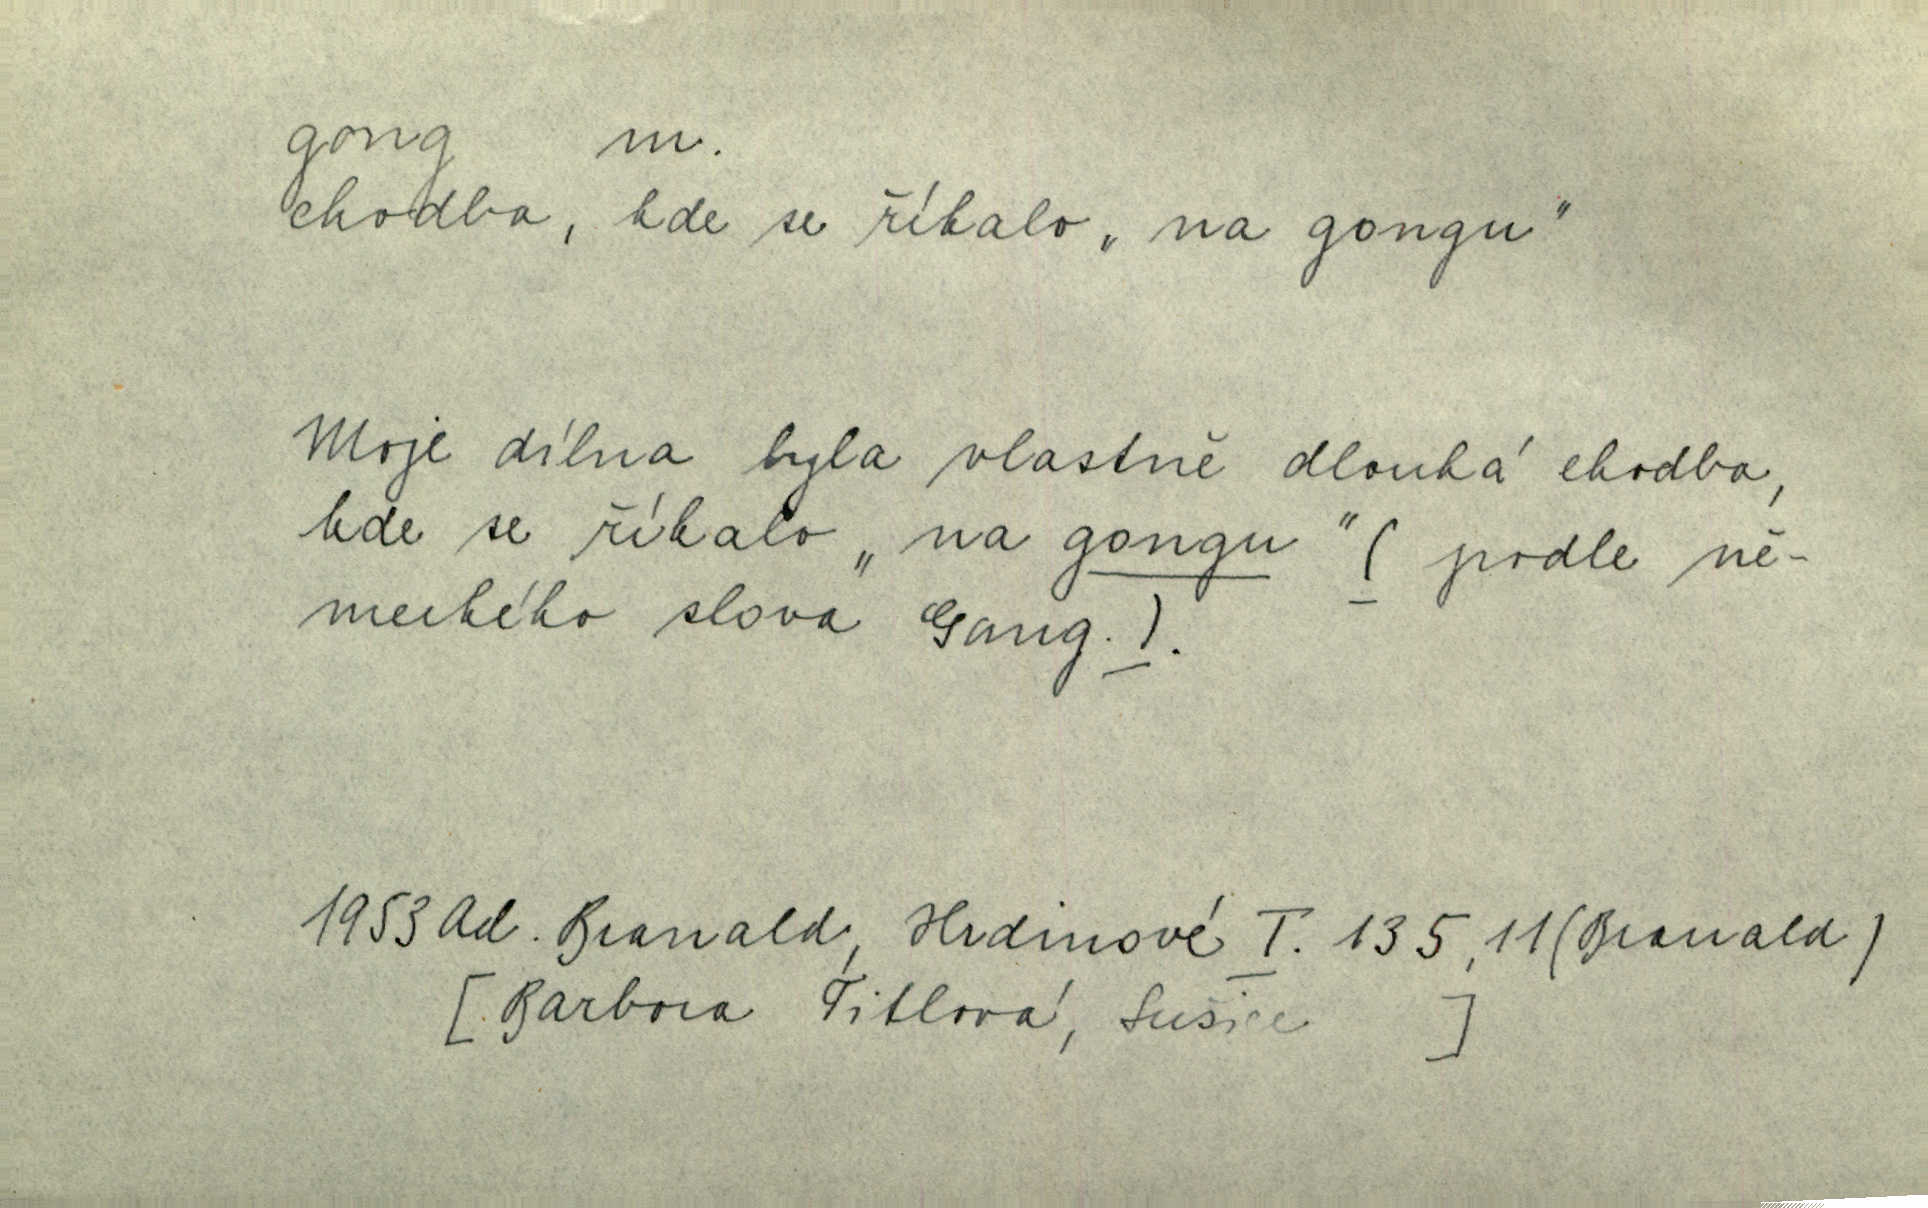 gong m.
chodba, kde se říkalo „na gongu"
Moje dílna byla vlastně dlouhá chodba,
kde se říkalo „na gongu" (podle ně-
meckého slova Gang.).
1953 Ad. Branald, Hrdinové I. 135, 11 (Branald)
[Barbora Titlová, Sušice ]